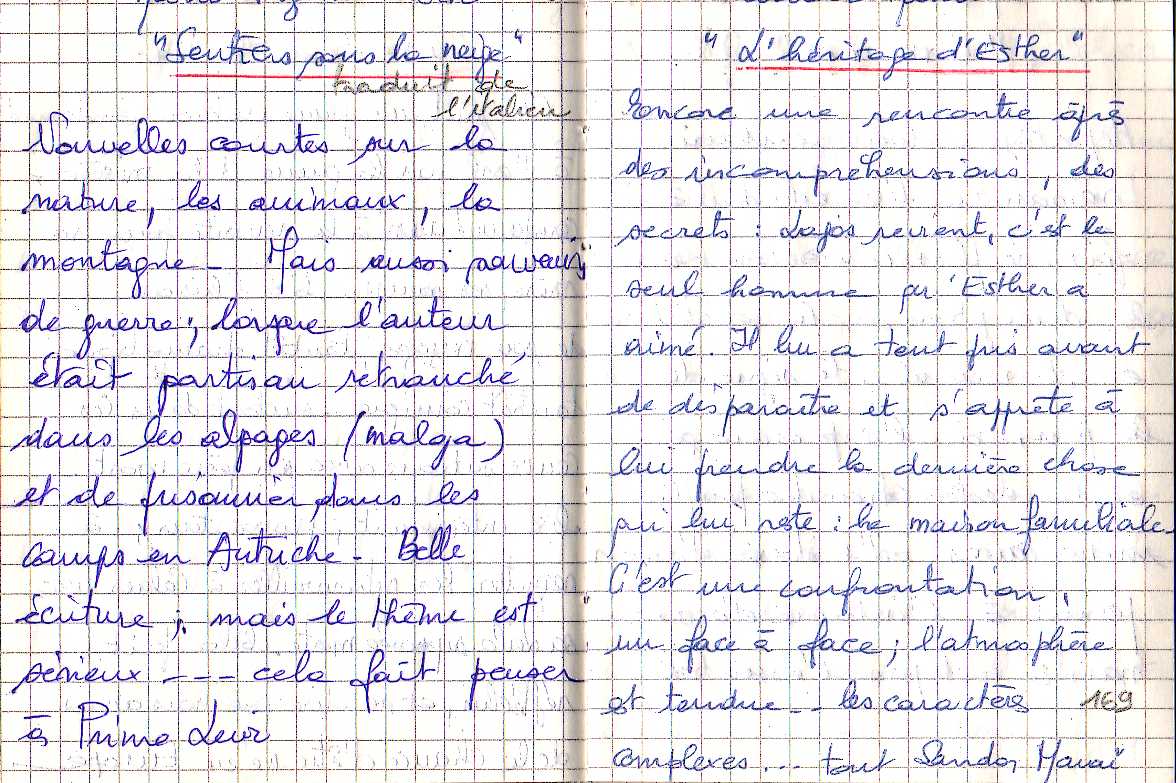 "Sentiers sous la neige"
traduit de
l'italien
Nouvelles courtes sur la
nature, les animaux, la
montagne - Mais aussi souvenirs
de guerre ; lorsque l'auteur
était partisan retranché
dans les alpages (malga)
et de prisonnier, dans les
camps en Autriche - Belle
écriture ; mais le thème est
sérieux --- cela fait penser
à Primo Levi
"L'héritage d'Esther"
Encore une rencontre après
des incompréhensions, des
secrets : Lajos revient, c'est le
seul homme qu'Esther a
aimé. Il lui a tout pris avant
de disparaître et s'apprête à
lui prendre la dernière chose
qui lui reste : la maison familiale.
C'est une confrontation,
un face à face ; l'atmosphère
est tendue -- les caractères
169
complexes ... tout Sandor Maraï